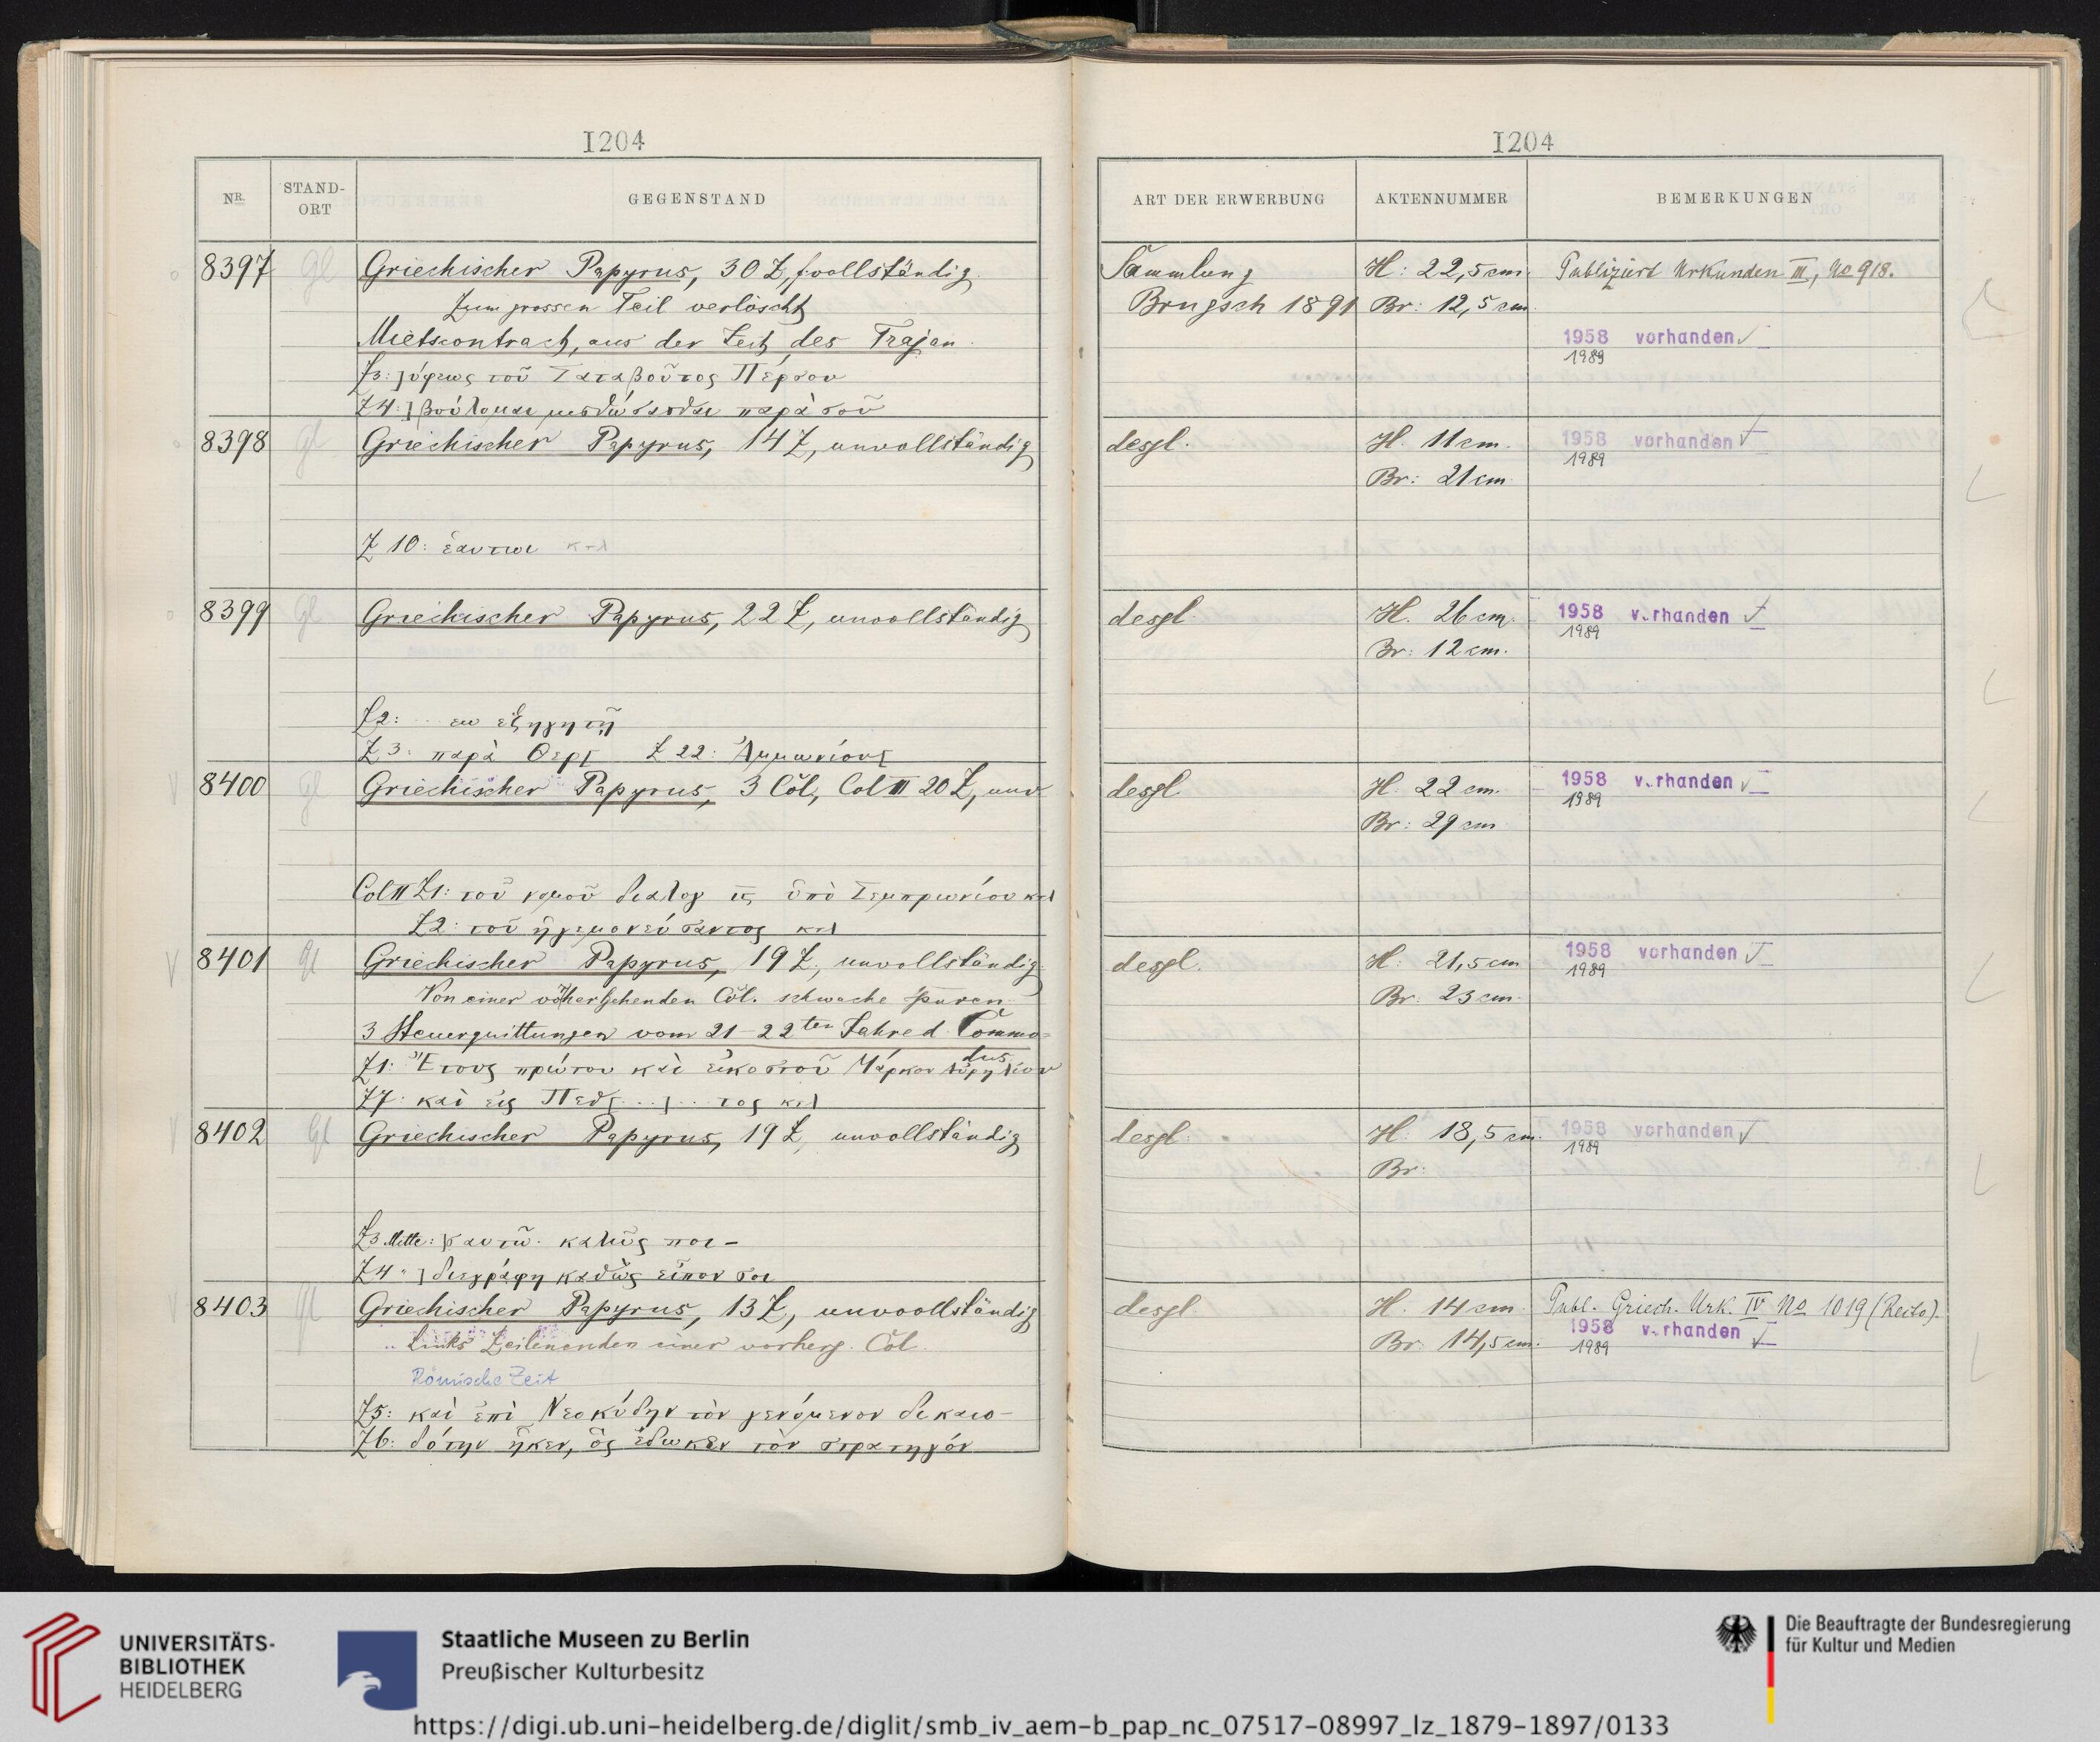 1204
NR.
STAND-
ORT
GEGENSTAND
8397 Gl Griechischer Papyrus, 30 Z, f. vollständig.
Zum grossen Teil verlöscht
Mietscontract, aus der Zeit des Trajan.
Z 4: ] βούλομαι μισθώσασθαι παρὰ σοῦ
8398 Gl Griechischer Papyrus, 14 Z, unvollständig
Z 10: ἑαυτωι κτλ
8399 Gl Griechischer Papyrus, 22 Z, unvollständig
Z 2: ἐξηγητῇ
Z 3: παρὰ Θερ[ Z 22: Ἀμμωνίου[
8400 Gl Griechischer Papyrus, 3 Col, Col II 20 Z, unv
Col II Z 1: τοῦ νομοῦ διαλογ ὑπὸ Σεμπρωνίου κτλ
Z 2: τοῦ ἡγεμονεύσαντος κτλ
8401 Gl Griechischer Papyrus, 19 Z., unvollständig
Von einer vorhergehenden Col. schwache Spuren
3 Steuerquittungen vom 21-22ten Jahre d. Commo=
dus
Z 1: Ἔτους πρώτου καὶ εἰκοστοῦ Μάρκου Αὐρηλίου
Z 7: καὶ εἰς Πεθ[...]..τος κτλ
8402 Gl Griechischer Papyrus, 19 Z, unvollständig
Z 3 Mitte: ]σαυτῶ. καλῶς ποι-
Z 4 " ] διεγράφη καθὼς εἶπον σοι
8403 Gl Griechischer Papyrus, 13 Z, unvollständig
Links Zeilenenden einer vorherg. Col.
Römische Zeit
Z 5: καὶ ἐπὶ Νεοκύδην τὸν γενόμενον δικαιο-
Z 6: δότην ἧκεν, ὃς ἔδωκεν τὸν στρατηγόν
1204
ART DER ERWERBUNG
AKTENNUMMER
BEMERKUNGEN
Sammlung H: 22,5 cm. Publizirt Urkunden III, No 918.
Brugsch 1891 Br: 12,5 cm.
1958 vorhanden ✓
1989
desgl. H. 11 cm. 1958 vorhanden ✓
1989
Br: 21 cm.
desgl. H. 26 cm. 1958 v.rhanden ✓
1989
Br: 12 cm.
desgl. H. 22 cm. 1958 v.rhanden ✓
1989
Br: 29 cm
desgl. H: 21,5 cm 1958 vorhanden ✓
1989
Br: 23 cm.
desgl. H: 18,5 cm. 1958 vorhanden ✓
1989
Br:
desgl. H. 14 cm. Publ. Griech. Urk. IV No 1019 (Recto).
Br: 14,5 cm. 1958 v.rhanden ✓
1989
UNIVERSITÄTS-
BIBLIOTHEK
HEIDELBERG
Staatliche Museen zu Berlin
Preußischer Kulturbesitz
Die Beauftragte der Bundesregierung
für Kultur und Medien
https://digi.ub.uni-heidelberg.de/diglit/smb_iv_aem-b_pap_nc_07517-08997_lz_1879-1897/0133